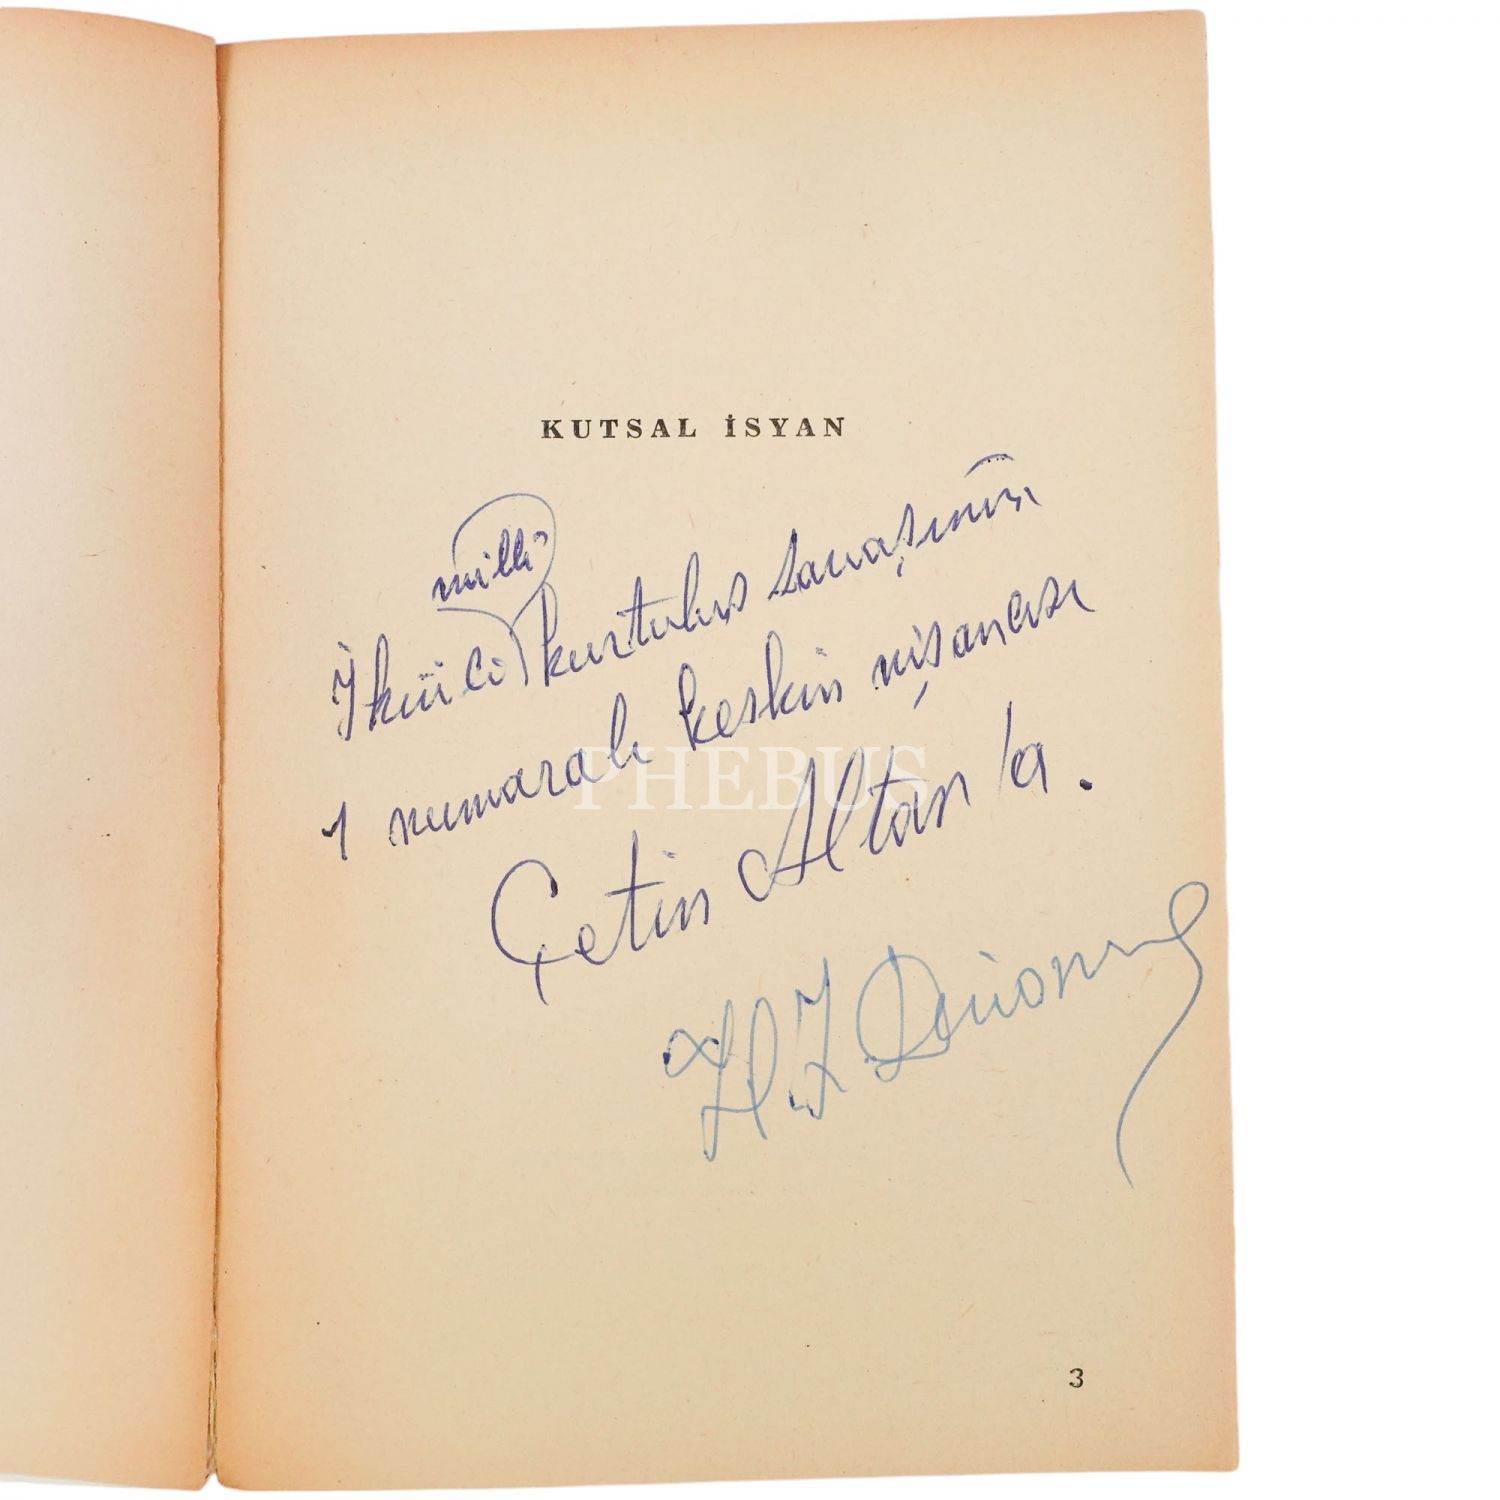 KUTSAL İSYAN
milli
İkinci kurtuluş savaşının
1 numaralı keskin nişancısı
Çetin Altan'a.
H İ Dinamo
PHEBUS
3